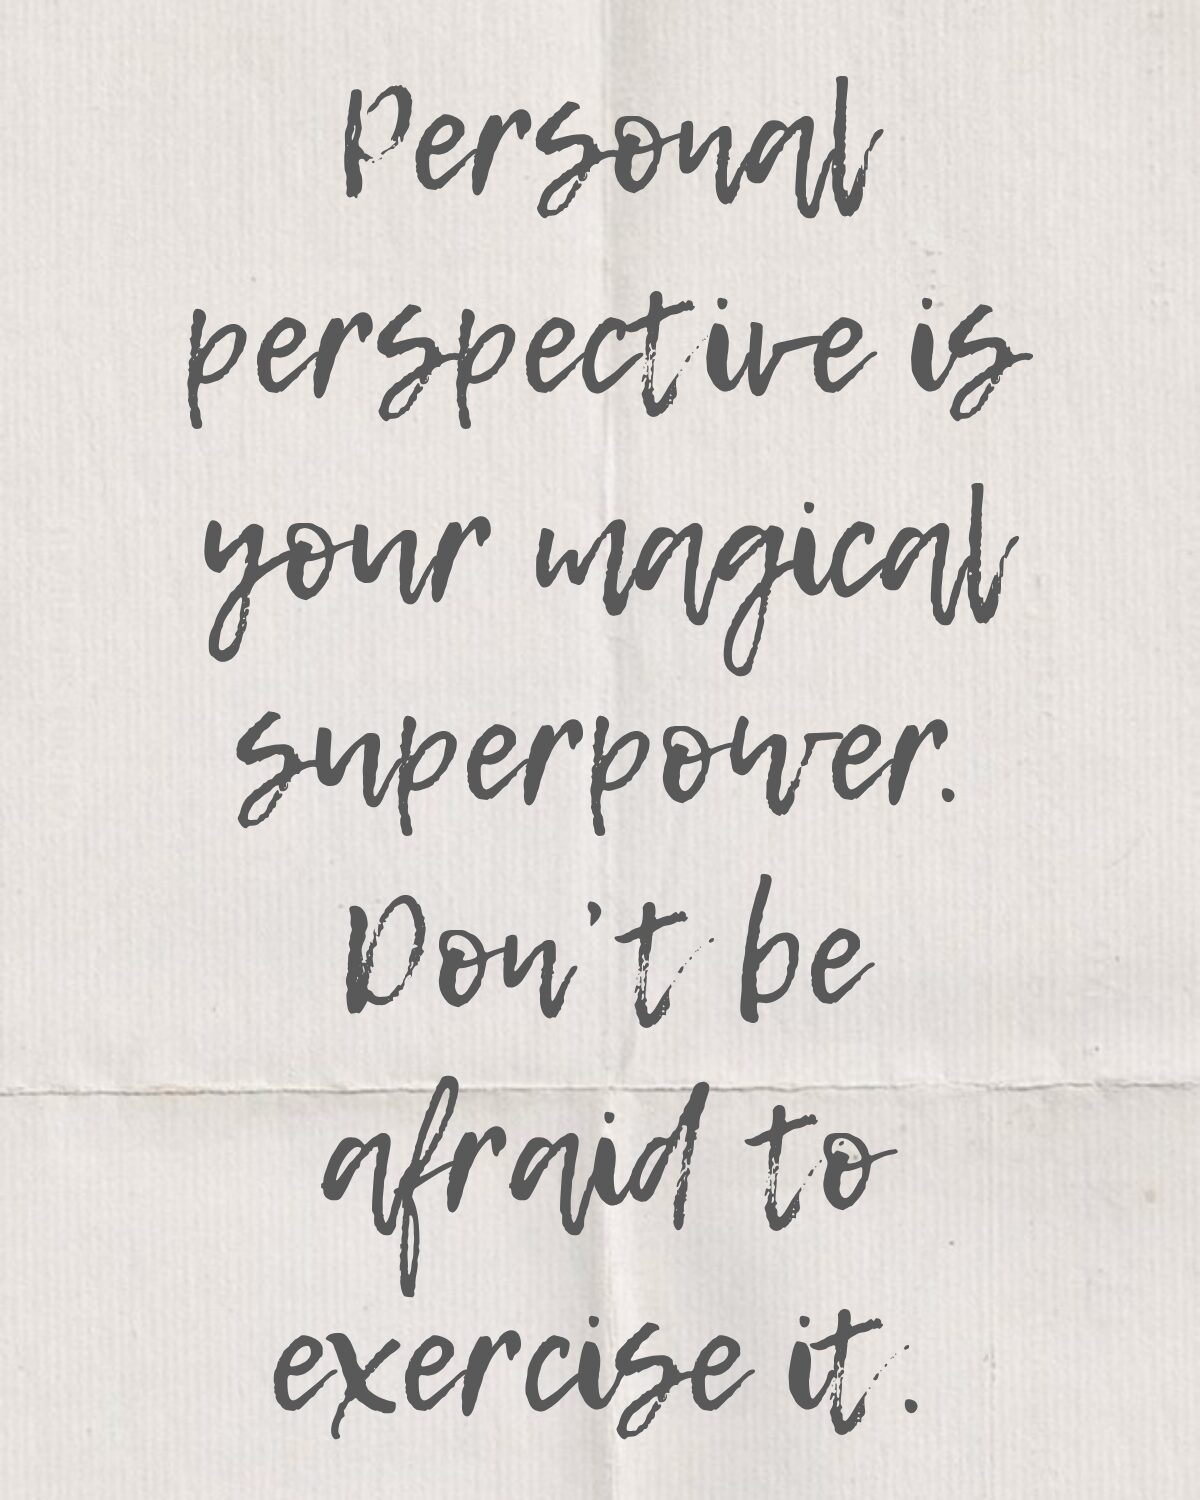 Personal
perspective is
your magical
superpower.
Don't be
afraid to
exercise it.